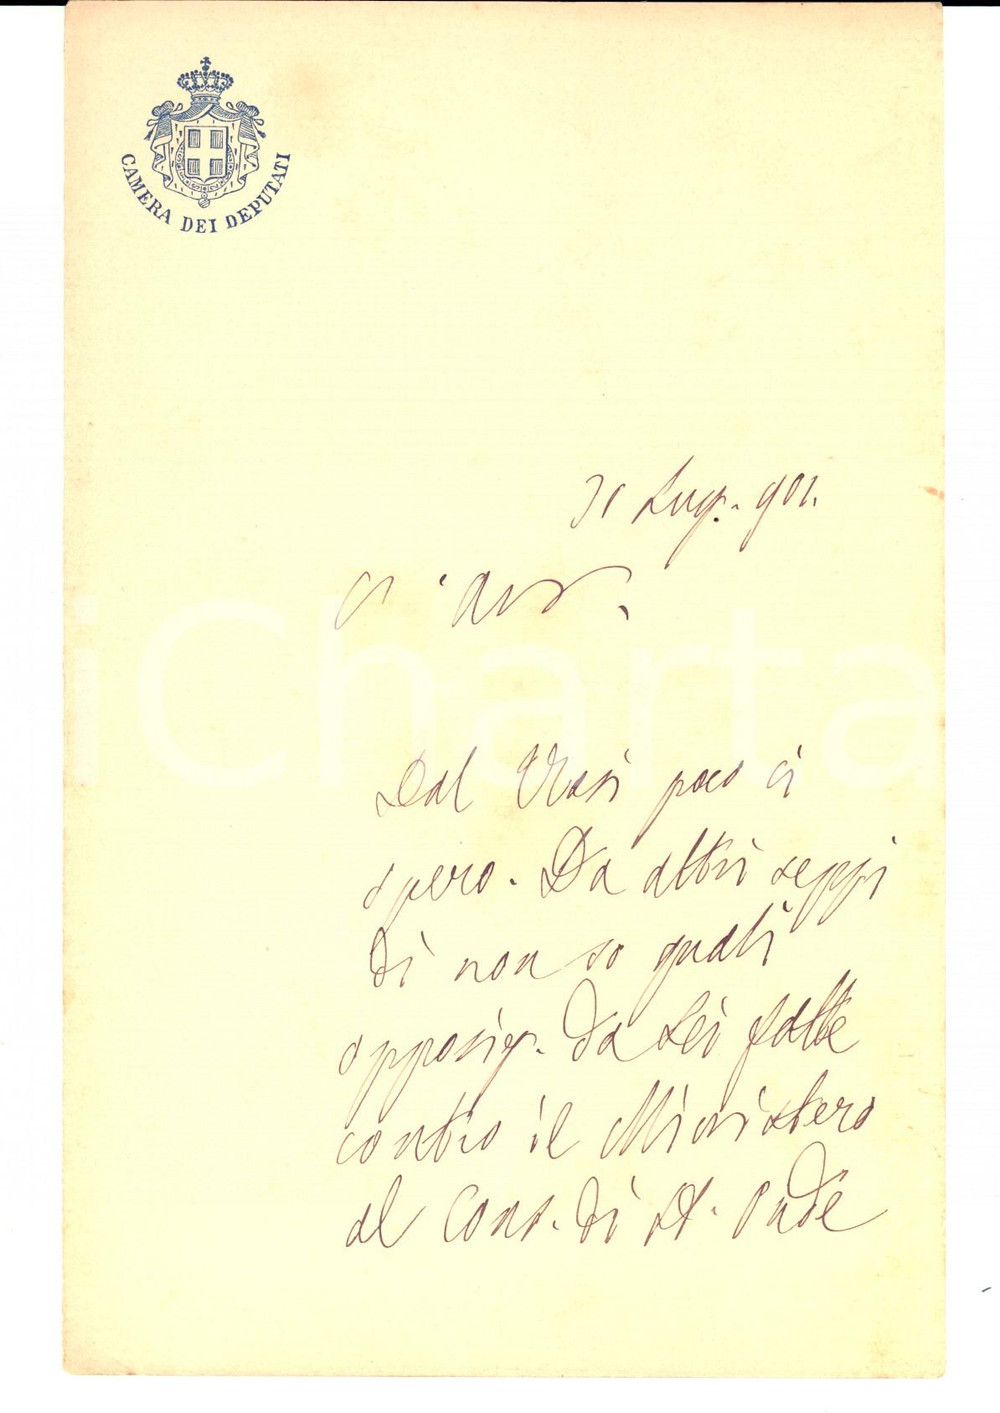 CAMERA DEI DEPUTATI
31 Lug. 901.
Dal Nasi poco ci
spero. Da altri seppi
di non so quali
opposiz. da Lei fatte
contro il Ministero
al Cons. di St. Onde
iCharta